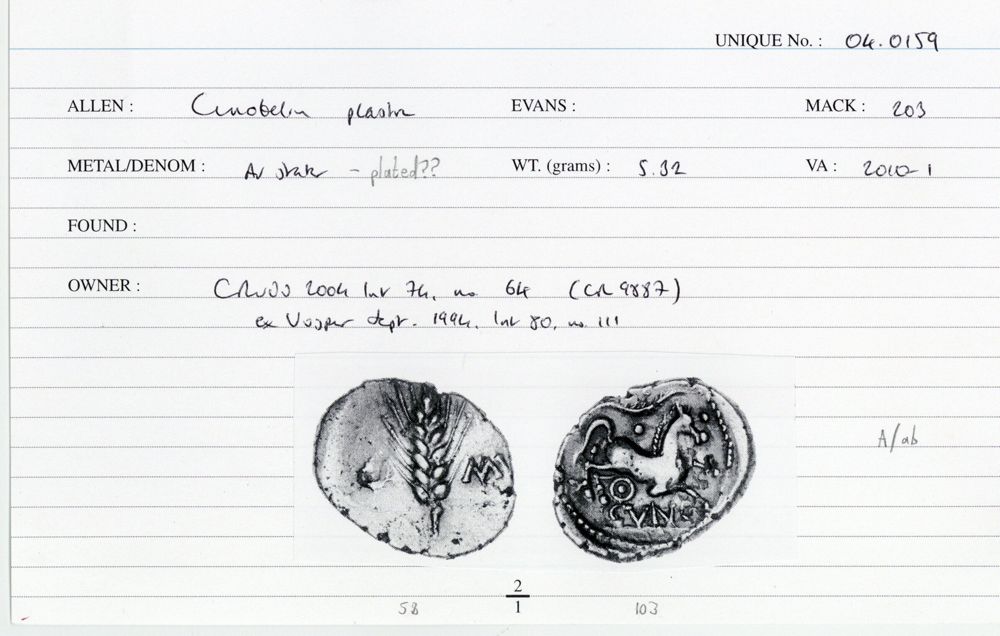 UNIQUE No. : 04.0159
ALLEN : Cunobelin plastic EVANS : MACK : 203
METAL/DENOM : AV stater - plated?? WT. (grams) : 5.32 VA : 2010-1
FOUND :
OWNER : 2004 list 74, no. 64 (CR 9887)
ex Vosper sept. 1994, list 80, no. 111
A/ab
CAM
CVNO
2
1
58 103